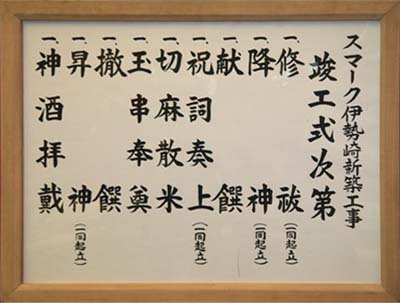 スマーク伊勢崎新築工事
竣工式次第
一、修祓(一同起立)
一、降神(一同起立)
一、献饌
一、祝詞奏上(一同起立)
一、切麻散米
一、玉串奉奠
一、撤饌
一、昇神(一同起立)
一、神酒拝戴